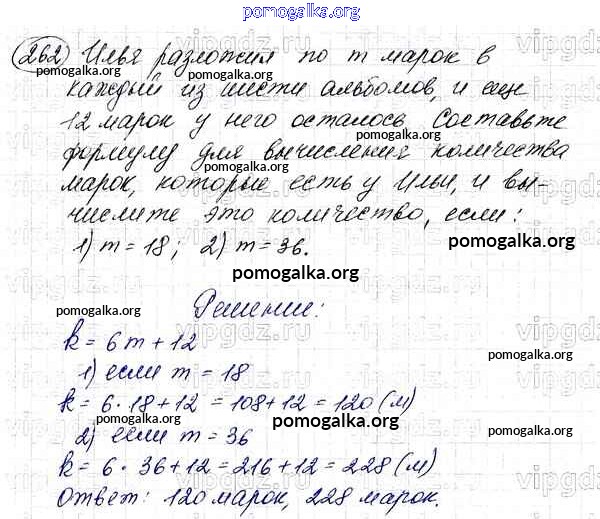 pomogalka.org
262) Илья разложил по m марок в
pomogalka.org pomogalka.org
каждый из шести альбомов, и еще
12 марок у него осталось. Составьте
pomogalka.org
формулу для вычисления количества
марок, которые есть у Ильи, и вы-
числите это количество, если:
1) m = 18; 2) m = 36.
pomogalka.org
pomogalka.org
Решение:
pomogalka.org pomogalka.org
k = 6m + 12
pomogalka.org
1) если m = 18
k = 6 · 18 + 12 = 108 + 12 = 120 (м)
pomogalka.org pomogalka.org
2) если m = 36
pomogalka.org
k = 6 · 36 + 12 = 216 + 12 = 228 (м)
pomogalka.org
Ответ: 120 марок, 228 марок.